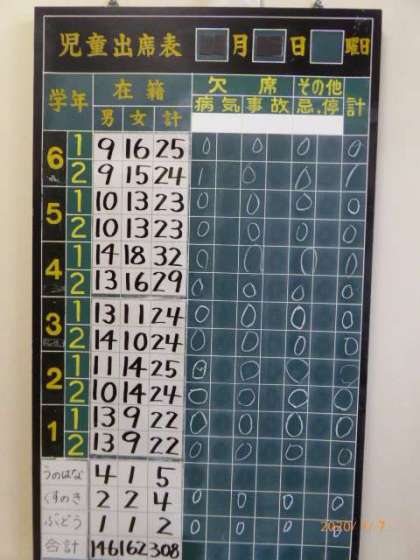 児童出席表 月 日 曜日
学年 在籍 欠席 その他 計
男 女 計 病気 事故 忌、停
6 1 9 16 25 0 0 0 0
2 9 15 24 1 0 0 1
5 1 10 13 23 0 0 0 0
2 10 13 23 0 0 0 0
4 1 14 18 32 0 0 0 0
2 13 16 29 0 0 0 0
3 1 13 11 24 0 0 0 0
2 14 10 24 0 0 0 0
2 1 11 14 25 0 0 0 0
2 10 14 24 0 0 0 0
1 1 13 9 22 0 0 0 0
2 13 9 22 0 0 0 0
うのはな 4 1 5
くすのき 2 2 4 0 0 0 0
ぶどう 1 1 2 0 0 0
合計 146 162 308